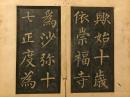 歟始十歲
依崇福寺
為沙弥十
七正度為